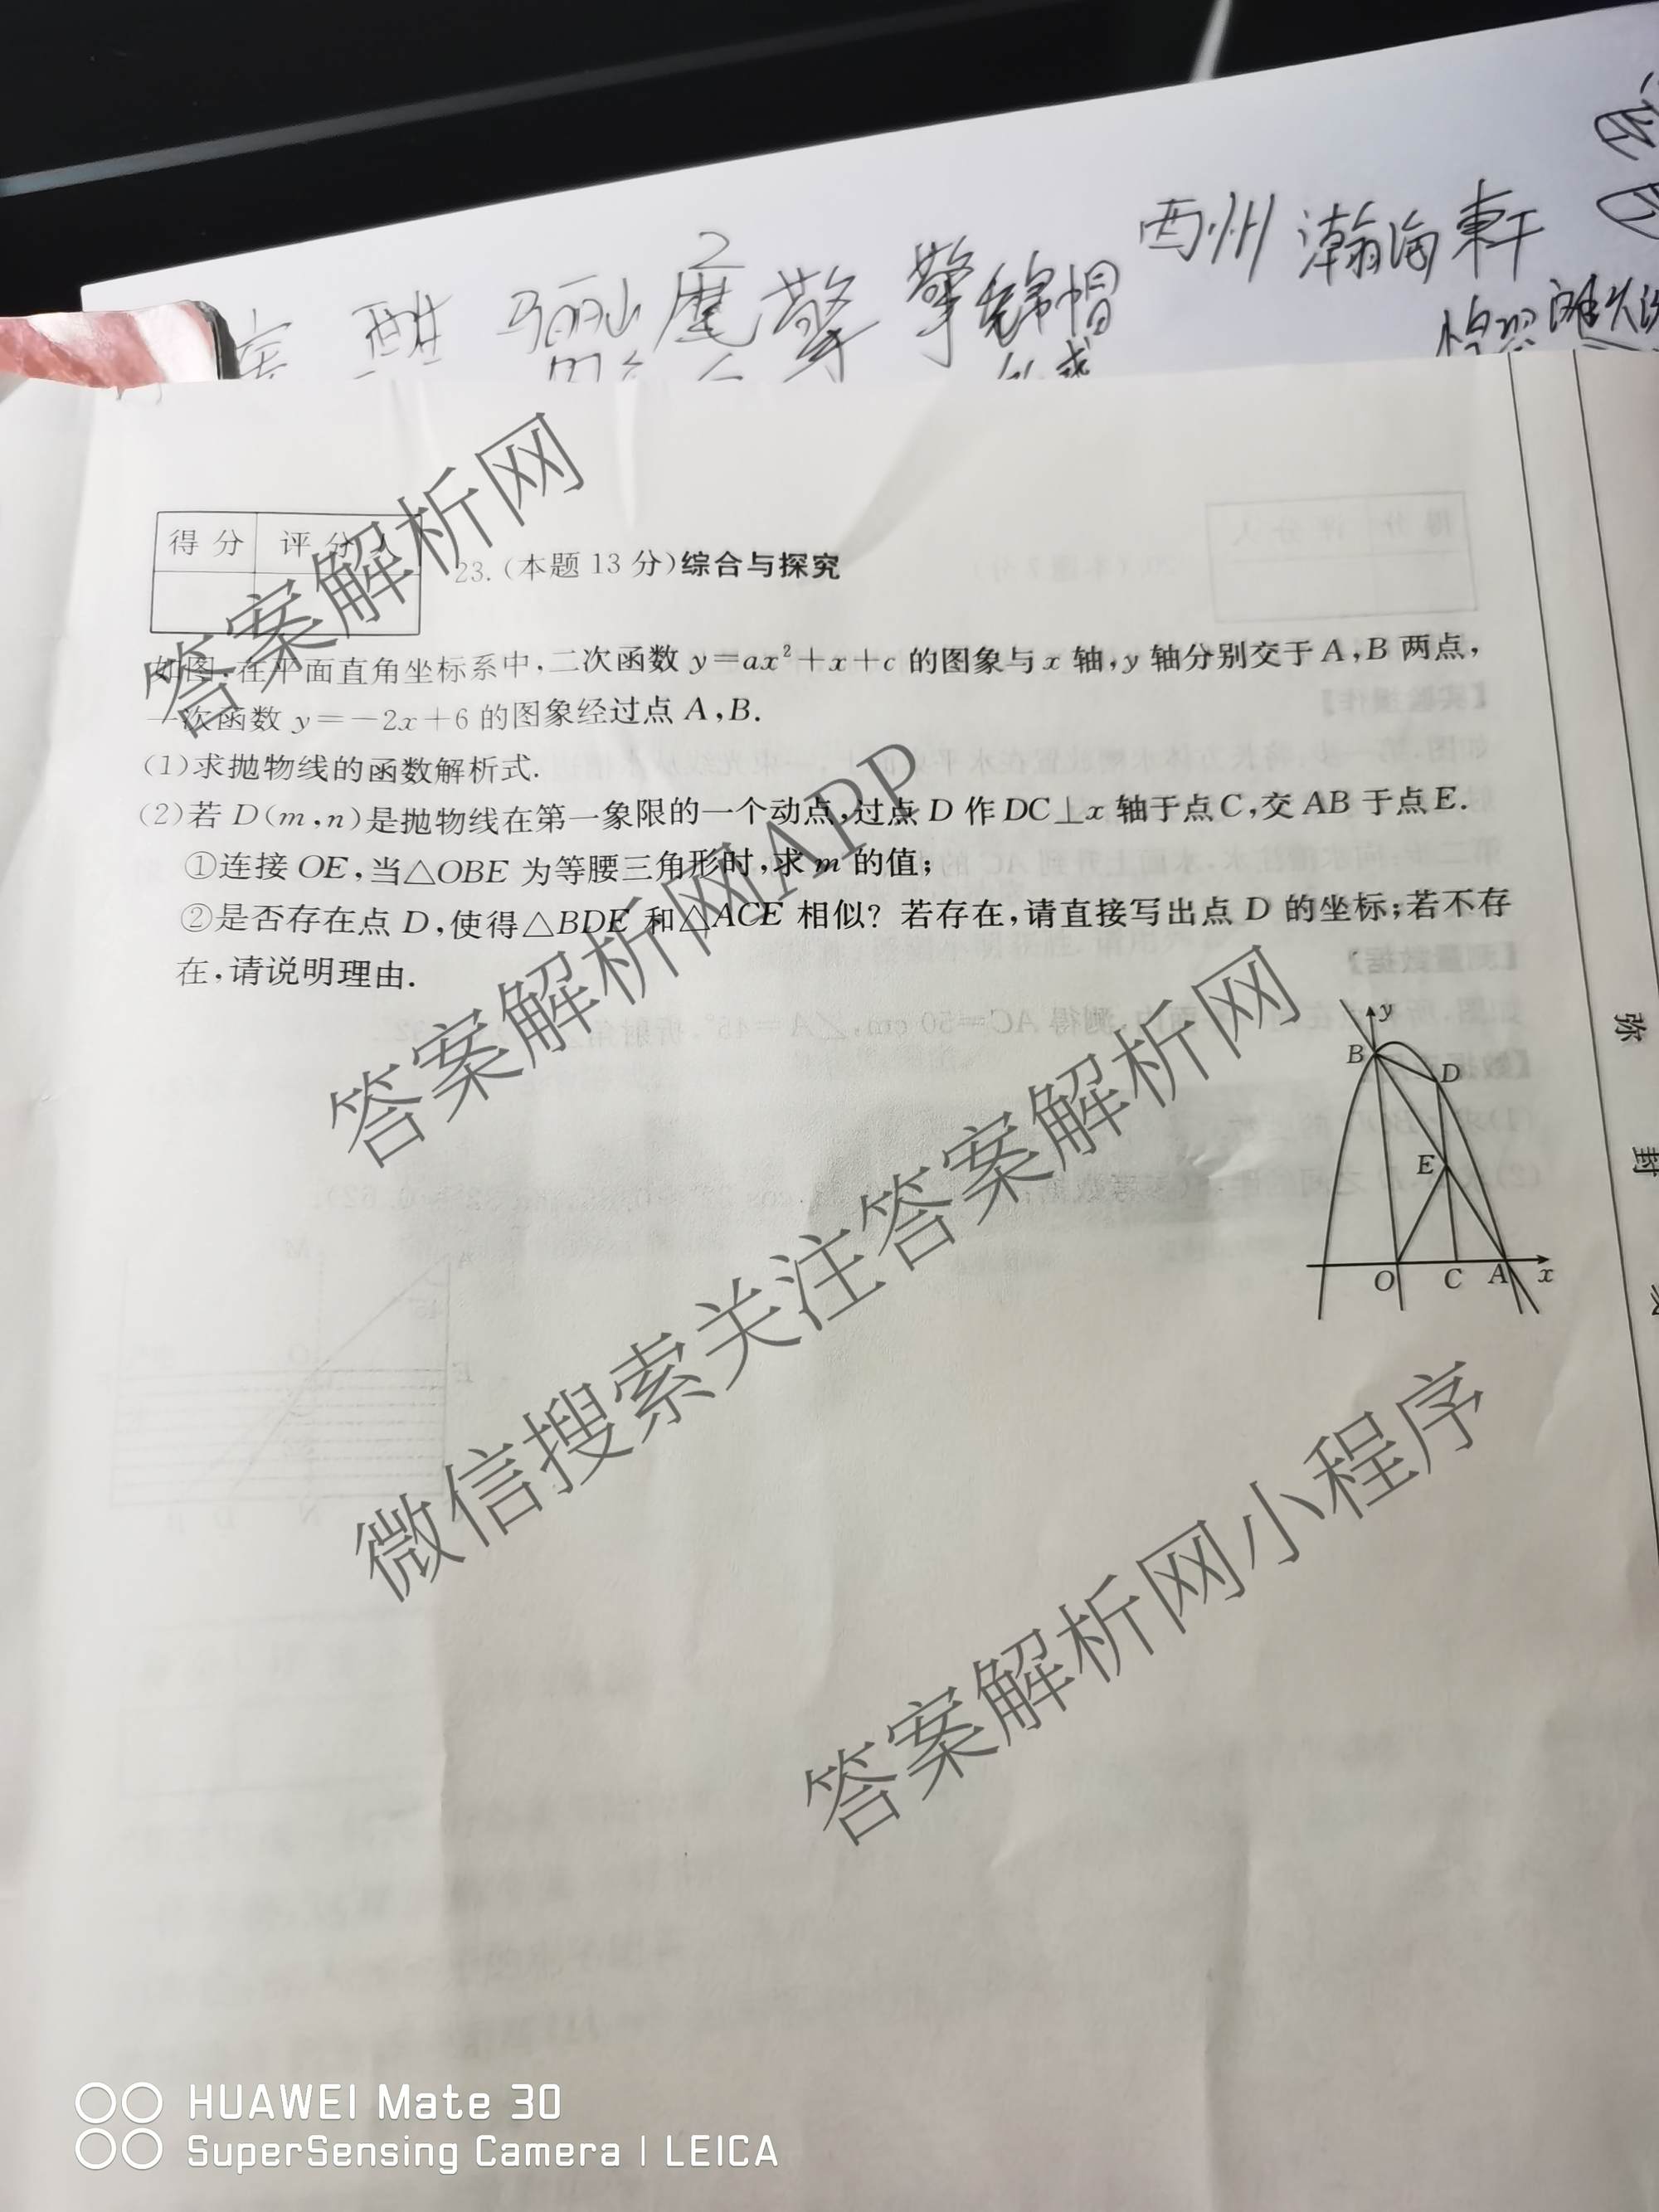 西州 瀚海
擎
锦帽
得分 评分人
23.(本题13分)综合与探究
如图,在平面直角坐标系中,二次函数 y=ax²+x+c 的图象与 x 轴,y 轴分别交于 A,B 两点,
一次函数 y=-2x+6 的图象经过点 A,B.
(1)求抛物线的函数解析式.
(2)若 D(m,n)是抛物线在第一象限的一个动点,过点 D 作 DC⊥x 轴于点 C,交 AB 于点 E.
①连接 OE,当△OBE 为等腰三角形时,求 m 的值;
②是否存在点 D,使得△BDE 和△ACE 相似? 若存在,请直接写出点 D 的坐标;若不存
在,请说明理由.
y
B
D
E
O C A x
弥
封
答案解析网
答案解析网APP
微信搜索关注答案解析网
答案解析网小程序
HUAWEI Mate 30
SuperSensing Camera | LEICA